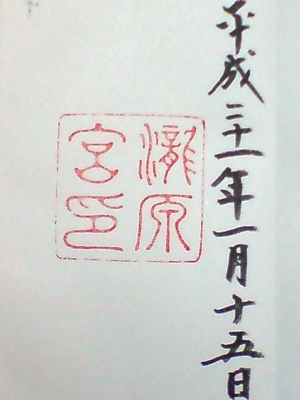 平成二十一年一月十五日
瀧原
宮印